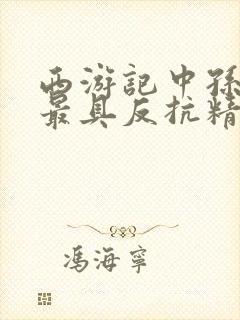 西游記中孫
最具反抗精
馮海寧